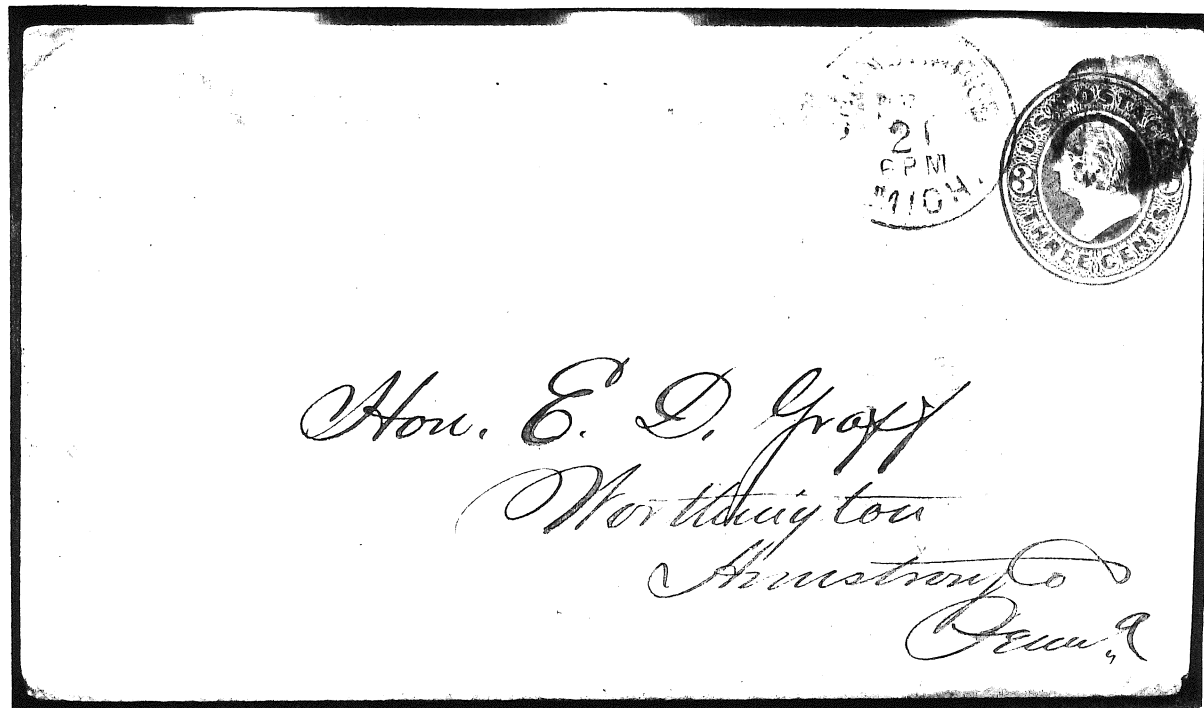 21
6 PM
MICH.
U.S. POSTAGE
3
THREE CENTS
Hon. E. D. Graff
Worthington
Armstrong Co
Penn.a